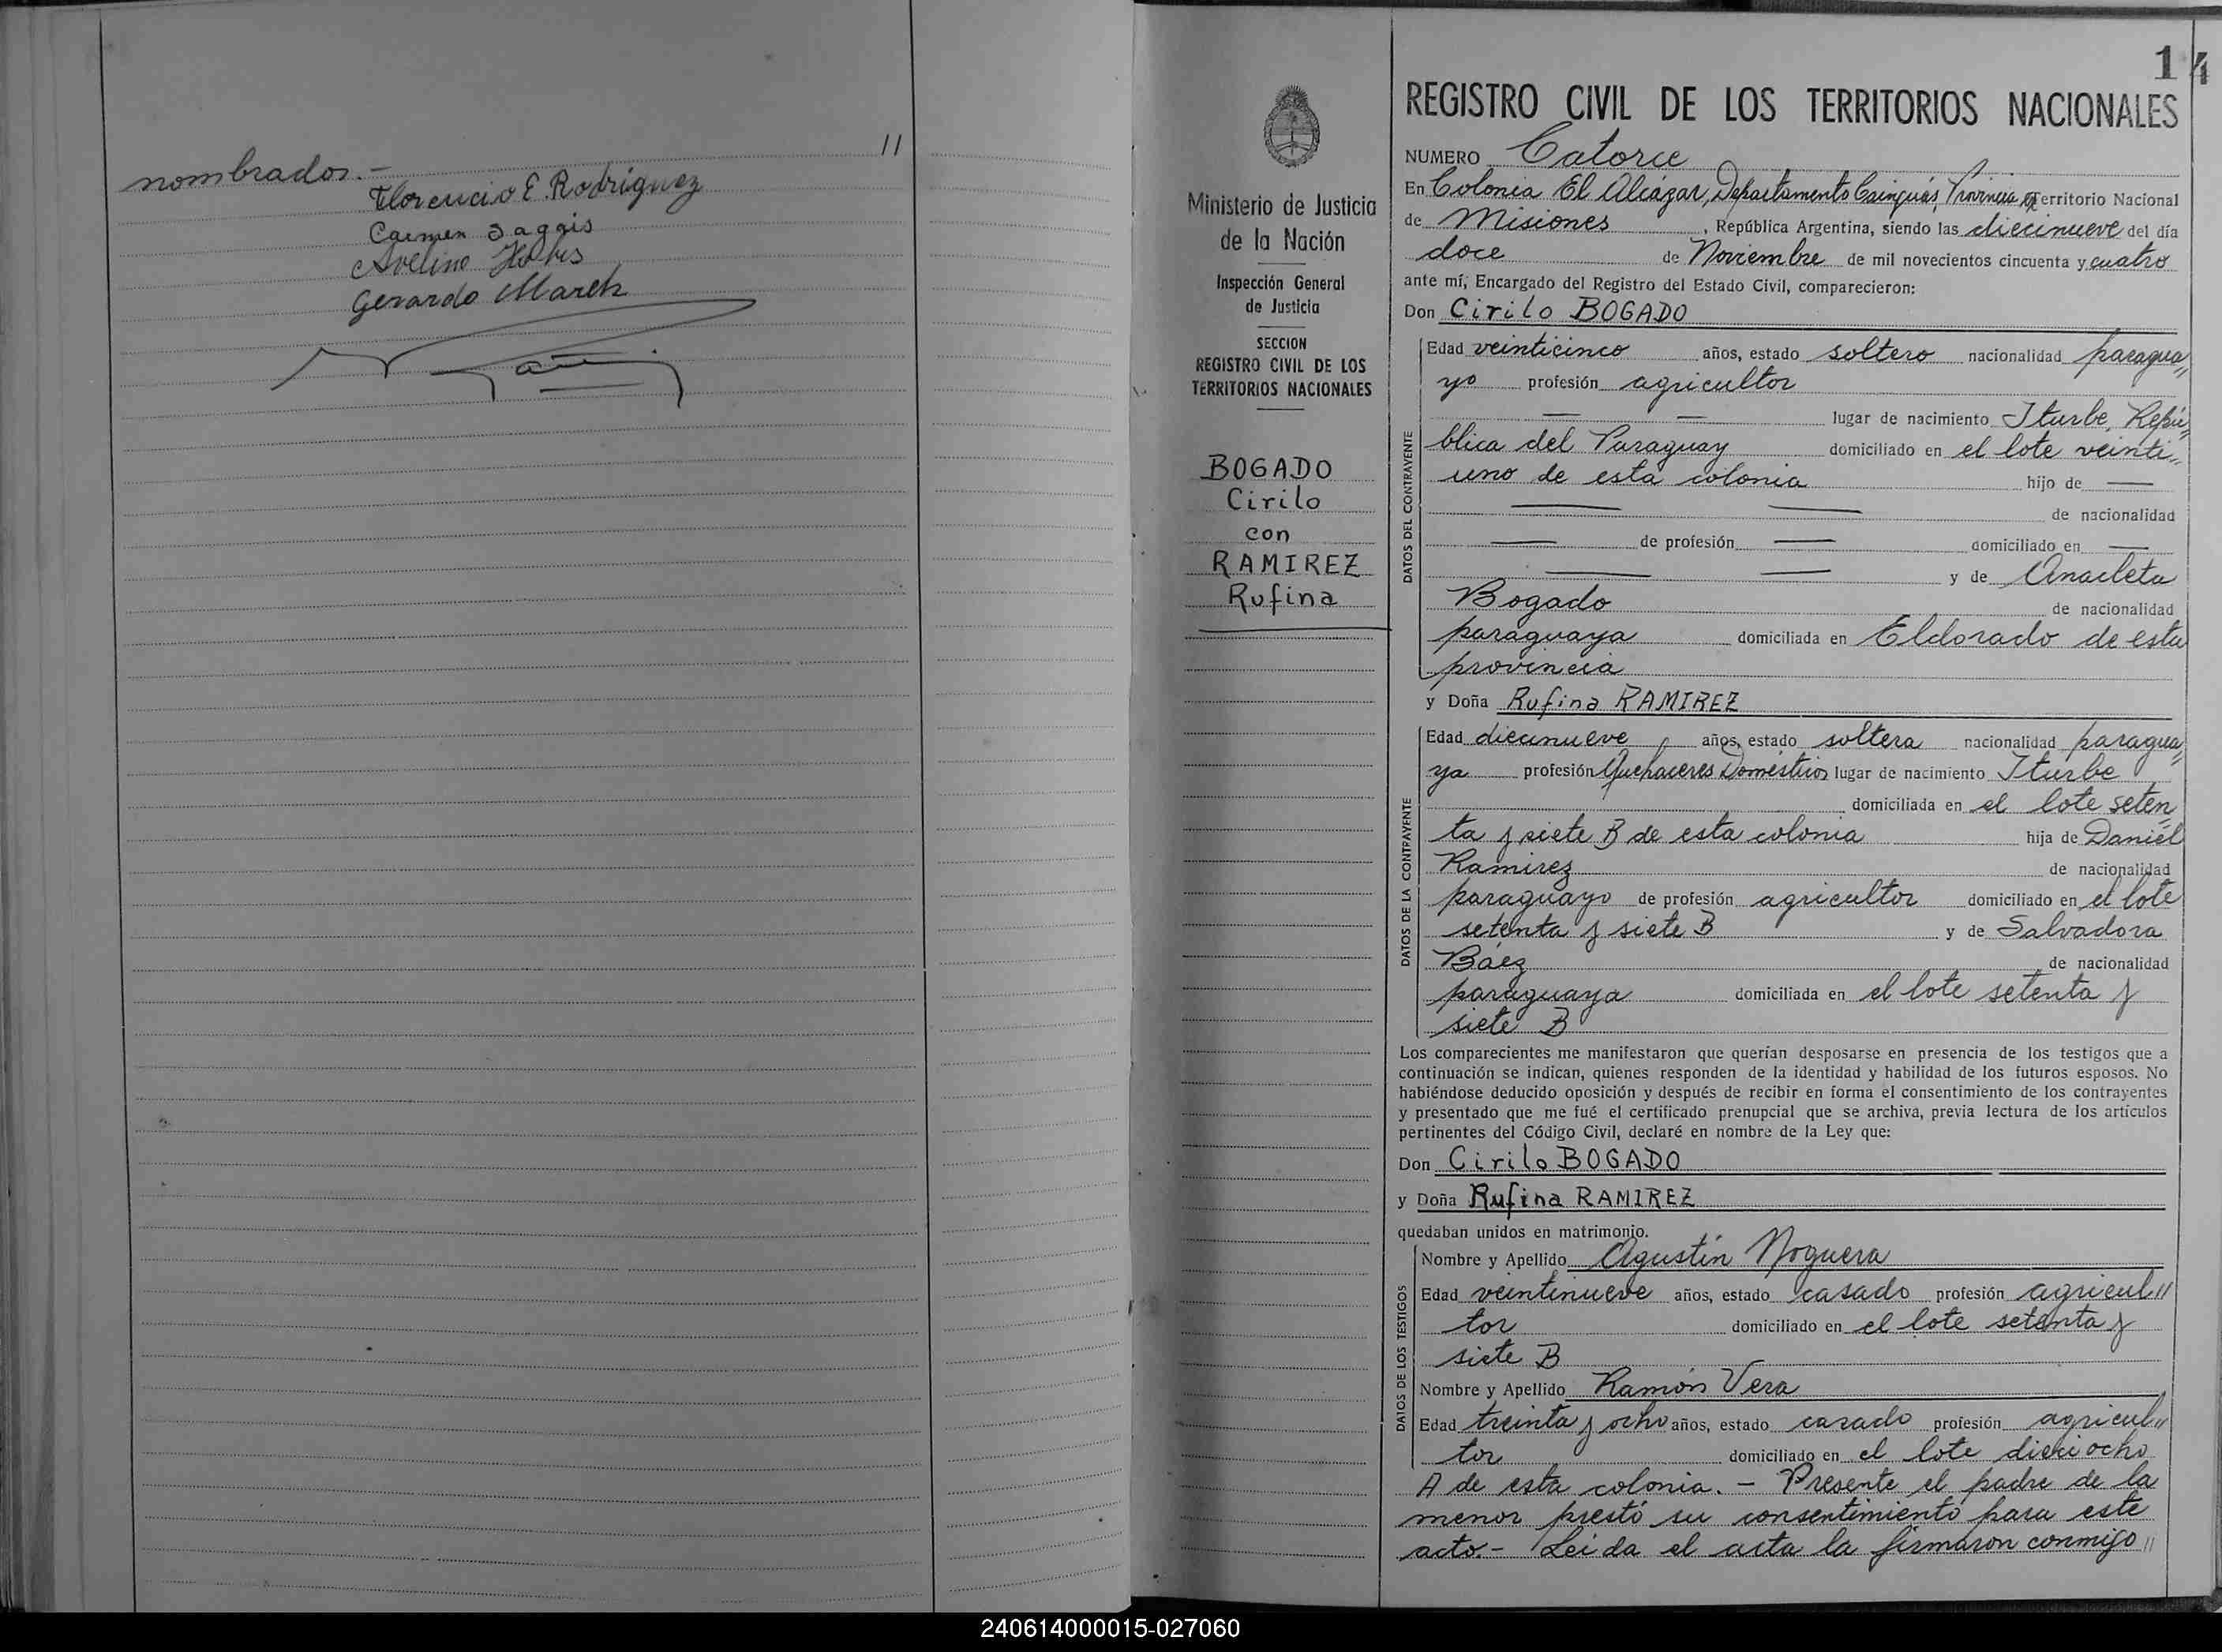 11
nombrados.-
Florencio E. Rodríguez
Carmen
Avelino
Gerardo March
14
REGISTRO CIVIL DE LOS TERRITORIOS NACIONALES
Ministerio de Justicia
de la Nación
Inspección General
de Justicia
SECCION
REGISTRO CIVIL DE LOS
TERRITORIOS NACIONALES
BOGADO
Cirilo
con
RAMIREZ
Rufina
NUMERO Catorce
En Colonia El Alcázar, Departamento Cainguás, Provincia Territorio Nacional
de Misiones, República Argentina, siendo las diecinueve del día
doce de Noviembre de mil novecientos cincuenta y cuatro
ante mí, Encargado del Registro del Estado Civil, comparecieron:
Don Cirilo BOGADO
DATOS DEL CONTRAYENTE
Edad veinticinco años, estado soltero nacionalidad paragua//
yo profesión agricultor
lugar de nacimiento Iturbe, Repú//
blica del Paraguay domiciliado en el lote veinti//
uno de esta colonia hijo de
de nacionalidad
de profesión domiciliado en
y de Anacleta
Bogado de nacionalidad
paraguaya domiciliada en Eldorado de esta
provincia
y Doña Rufina RAMIREZ
DATOS DE LA CONTRAYENTE
Edad diecinueve años, estado soltera nacionalidad paragua//
ya profesión Quehaceres Domésticos lugar de nacimiento Iturbe
domiciliada en el lote seten//
ta y siete B de esta colonia hija de Daniel
Ramirez de nacionalidad
paraguayo de profesión agricultor domiciliado en el lote
setenta y siete B y de Salvadora
Báez de nacionalidad
paraguaya domiciliada en el lote setenta y
siete B
Los comparecientes me manifestaron que querían desposarse en presencia de los testigos que a
continuación se indican, quienes responden de la identidad y habilidad de los futuros esposos. No
habiéndose deducido oposición y después de recibir en forma el consentimiento de los contrayentes
y presentado que me fué el certificado prenupcial que se archiva, previa lectura de los artículos
pertinentes del Código Civil, declaré en nombre de la Ley que:
Don Cirilo BOGADO
y Doña Rufina RAMIREZ
quedaban unidos en matrimonio.
DATOS DE LOS TESTIGOS
Nombre y Apellido Agustín Noguera
Edad veintinueve años, estado casado profesión agricul//
tor domiciliado en el lote setenta y
siete B
Nombre y Apellido Ramón Vera
Edad treinta y ocho años, estado casado profesión agricul//
tor domiciliado en el lote dieciocho
A de esta colonia. - Presente el padre de la
menor prestó su consentimiento para este
acto.- Leída el acta la firmaron conmigo //
240614000015-027060